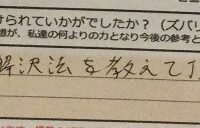 けられていかがでしたか？（ズバリ
想が、私達の何よりの力となり今後の参考と
解沢法を教えて丁